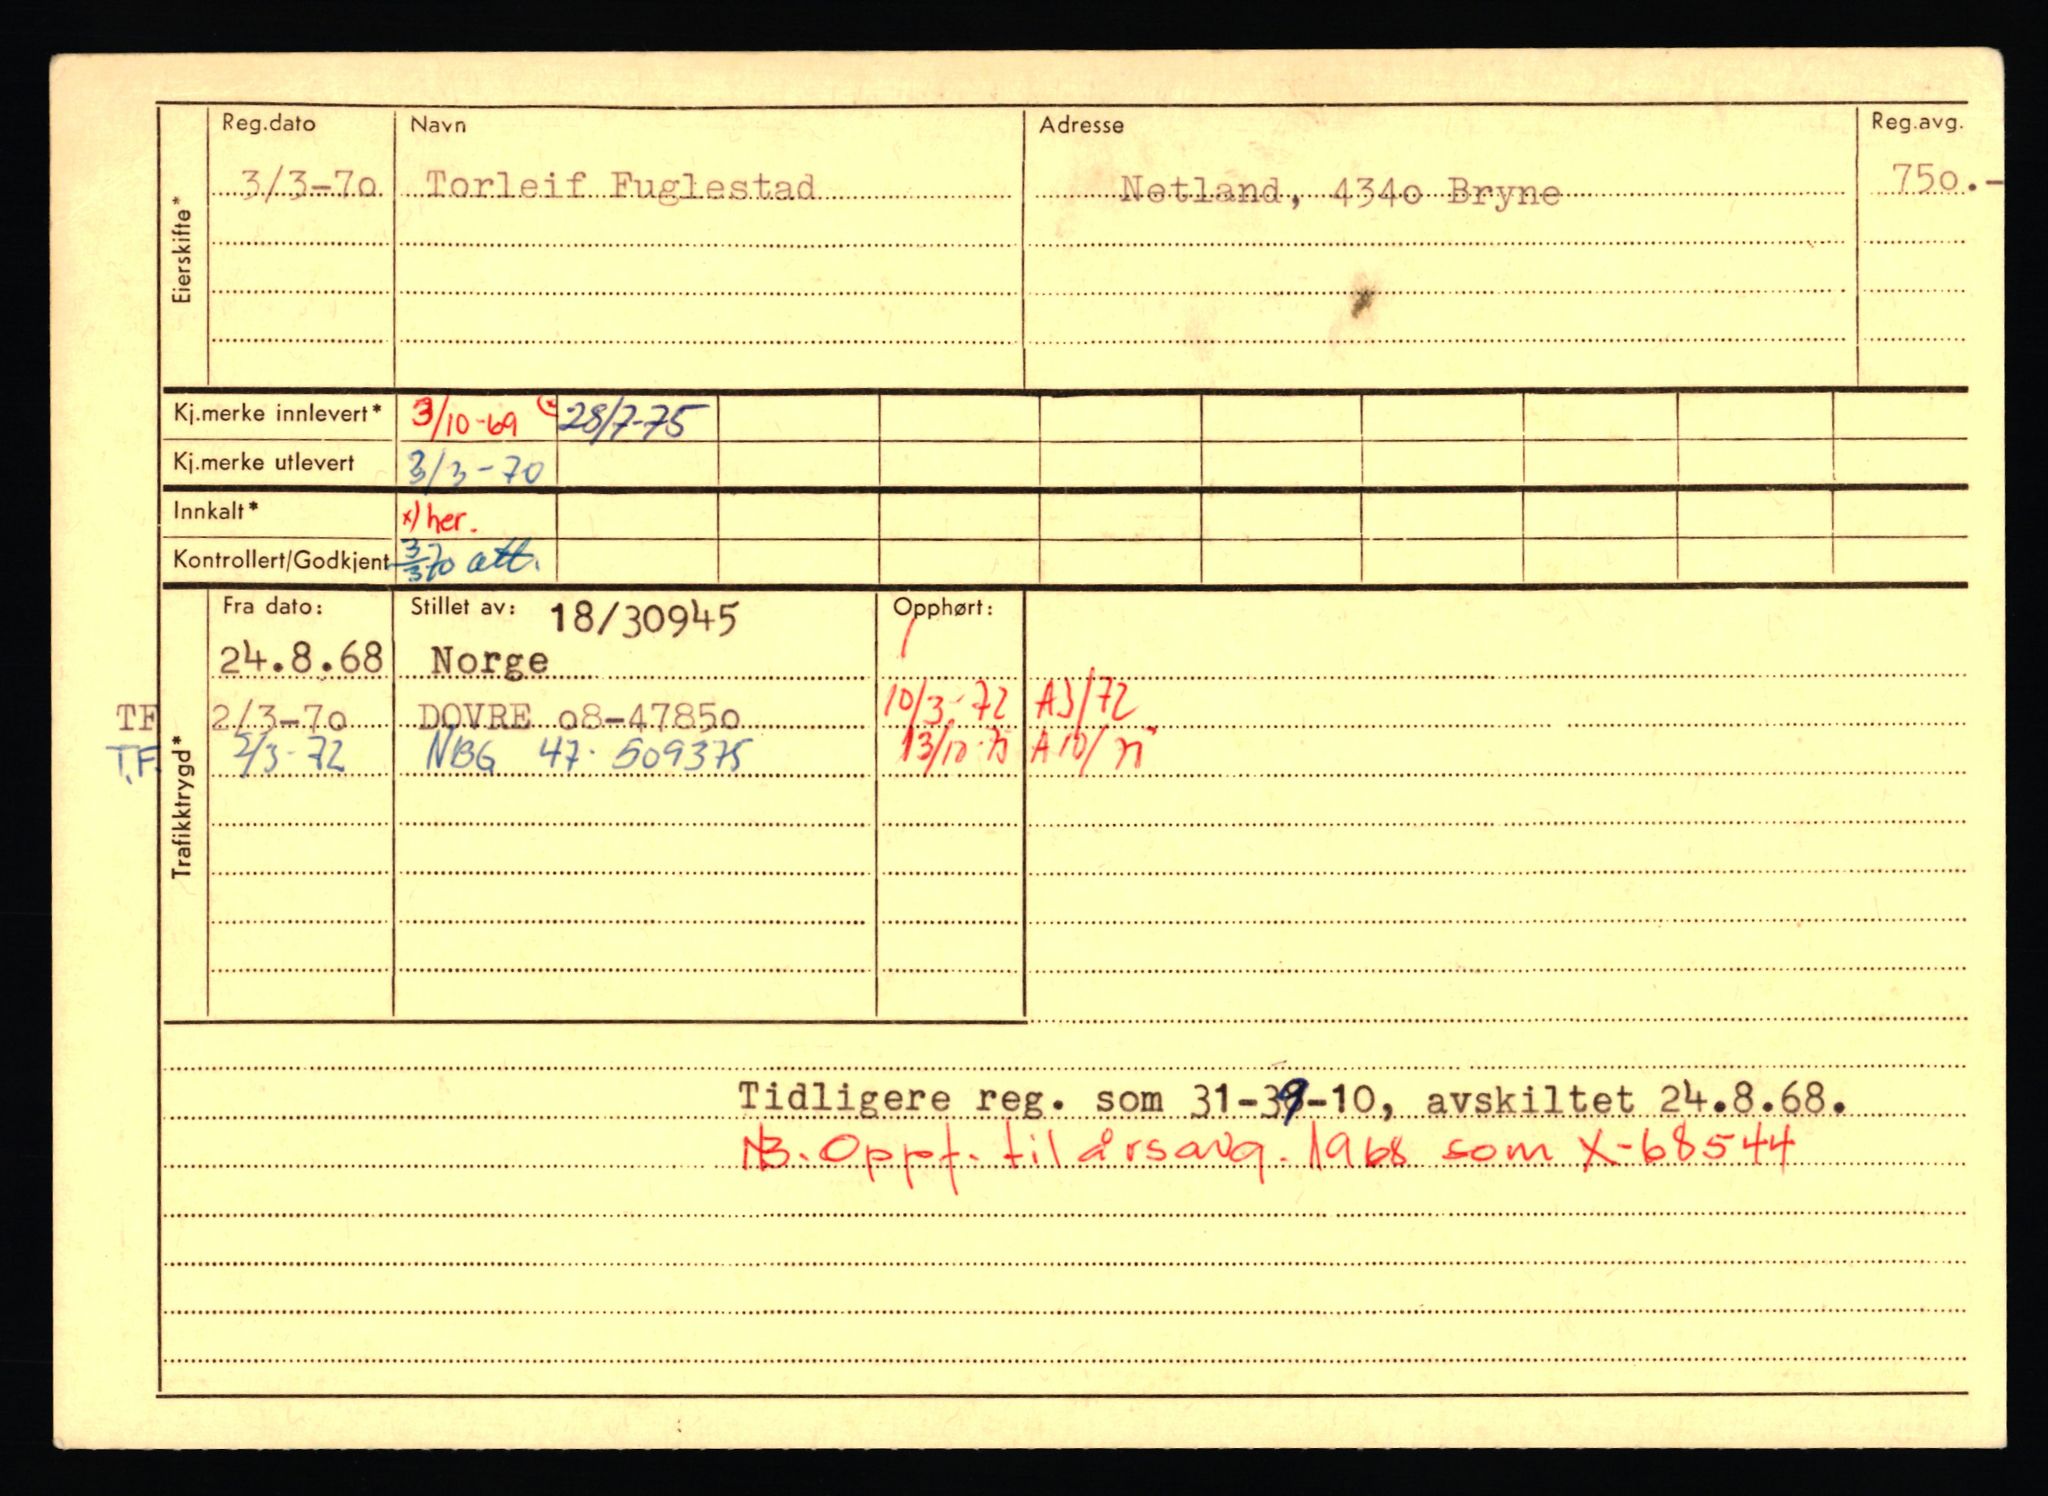 Reg.dato Navn Adresse Reg.avg.
3/3-7o Torleif Fuglestad Netland, 434o Bryne 75o.-
Eierskifte*
Kj.merke innlevert* 3/10-69 28/7-75
Kj.merke utlevert 3/3-70
Innkalt* x) her.
Kontrollert/Godkjent 3/3 70 att.
Fra dato: Stillet av: 18/30945 Opphørt:
24.8.68 Norge
TF 2/3-7o DOVRE o8-4785o 10/3-72 A3/72
T.F. 2/3-72 NBG 47-509375 13/10-75 A10/75
Trafikktrygd*
Tidligere reg. som 31-39-10, avskiltet 24.8.68.
NB. Oppf. til årsavg. 1968 som X-68544